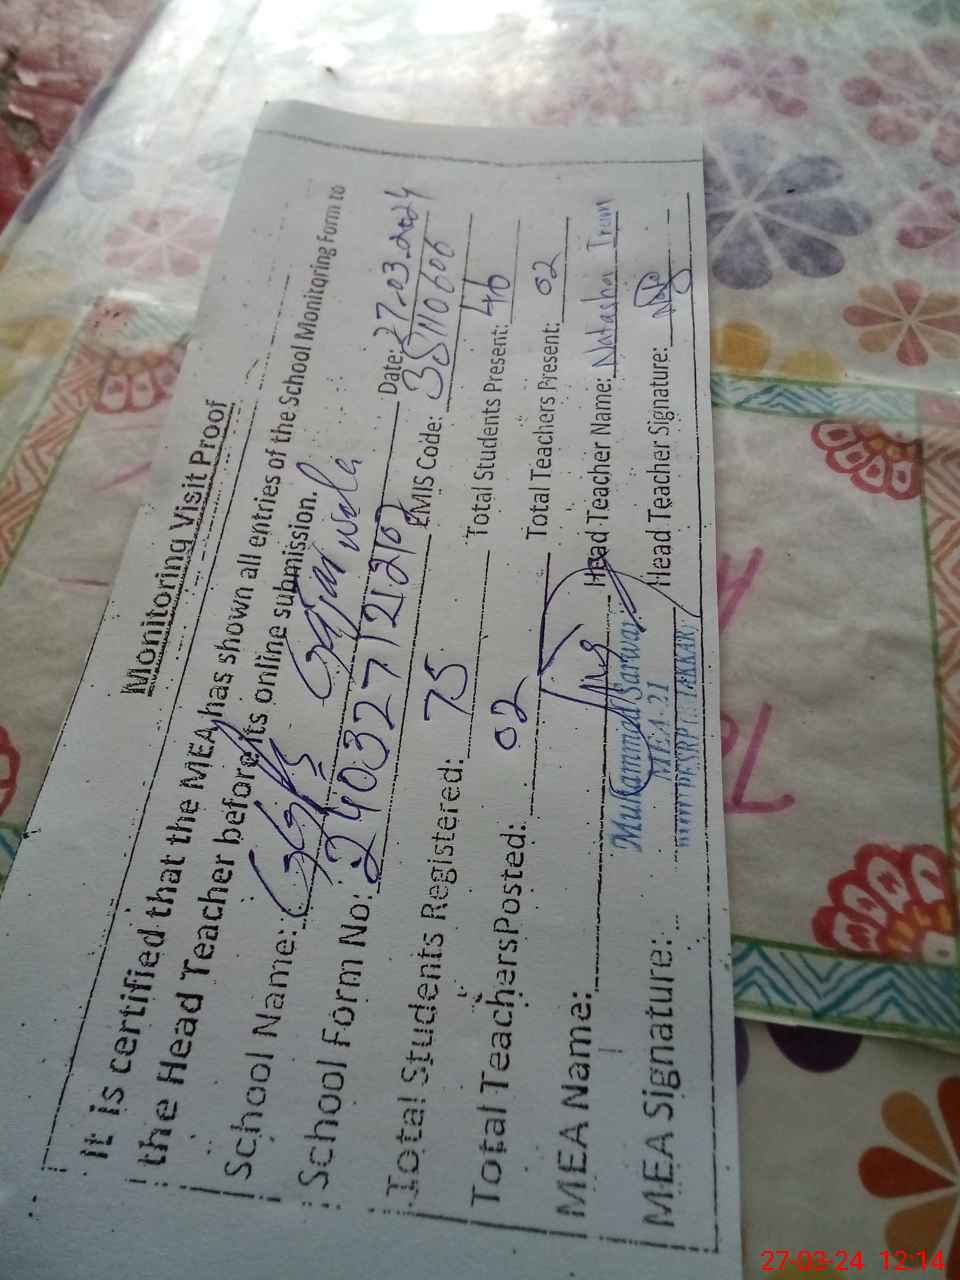 Monitoring Visit Proof
It is certified that the MEA has shown all entries of the School Monitoring Form to
the Head Teacher before its online submission.
School Name: wala Date: 27.03.2024
School Form No: EMIS Code: 35110606
Total Students Registered: 75 Total Students Present: 46
Total TeachersPosted: 02 Total Teachers Present: 02
MEA Name: Muhammad Sarwar Head Teacher Name: Natasha
MEA 21
MEA Signature: Head Teacher Signature:
27-03-24 12:14